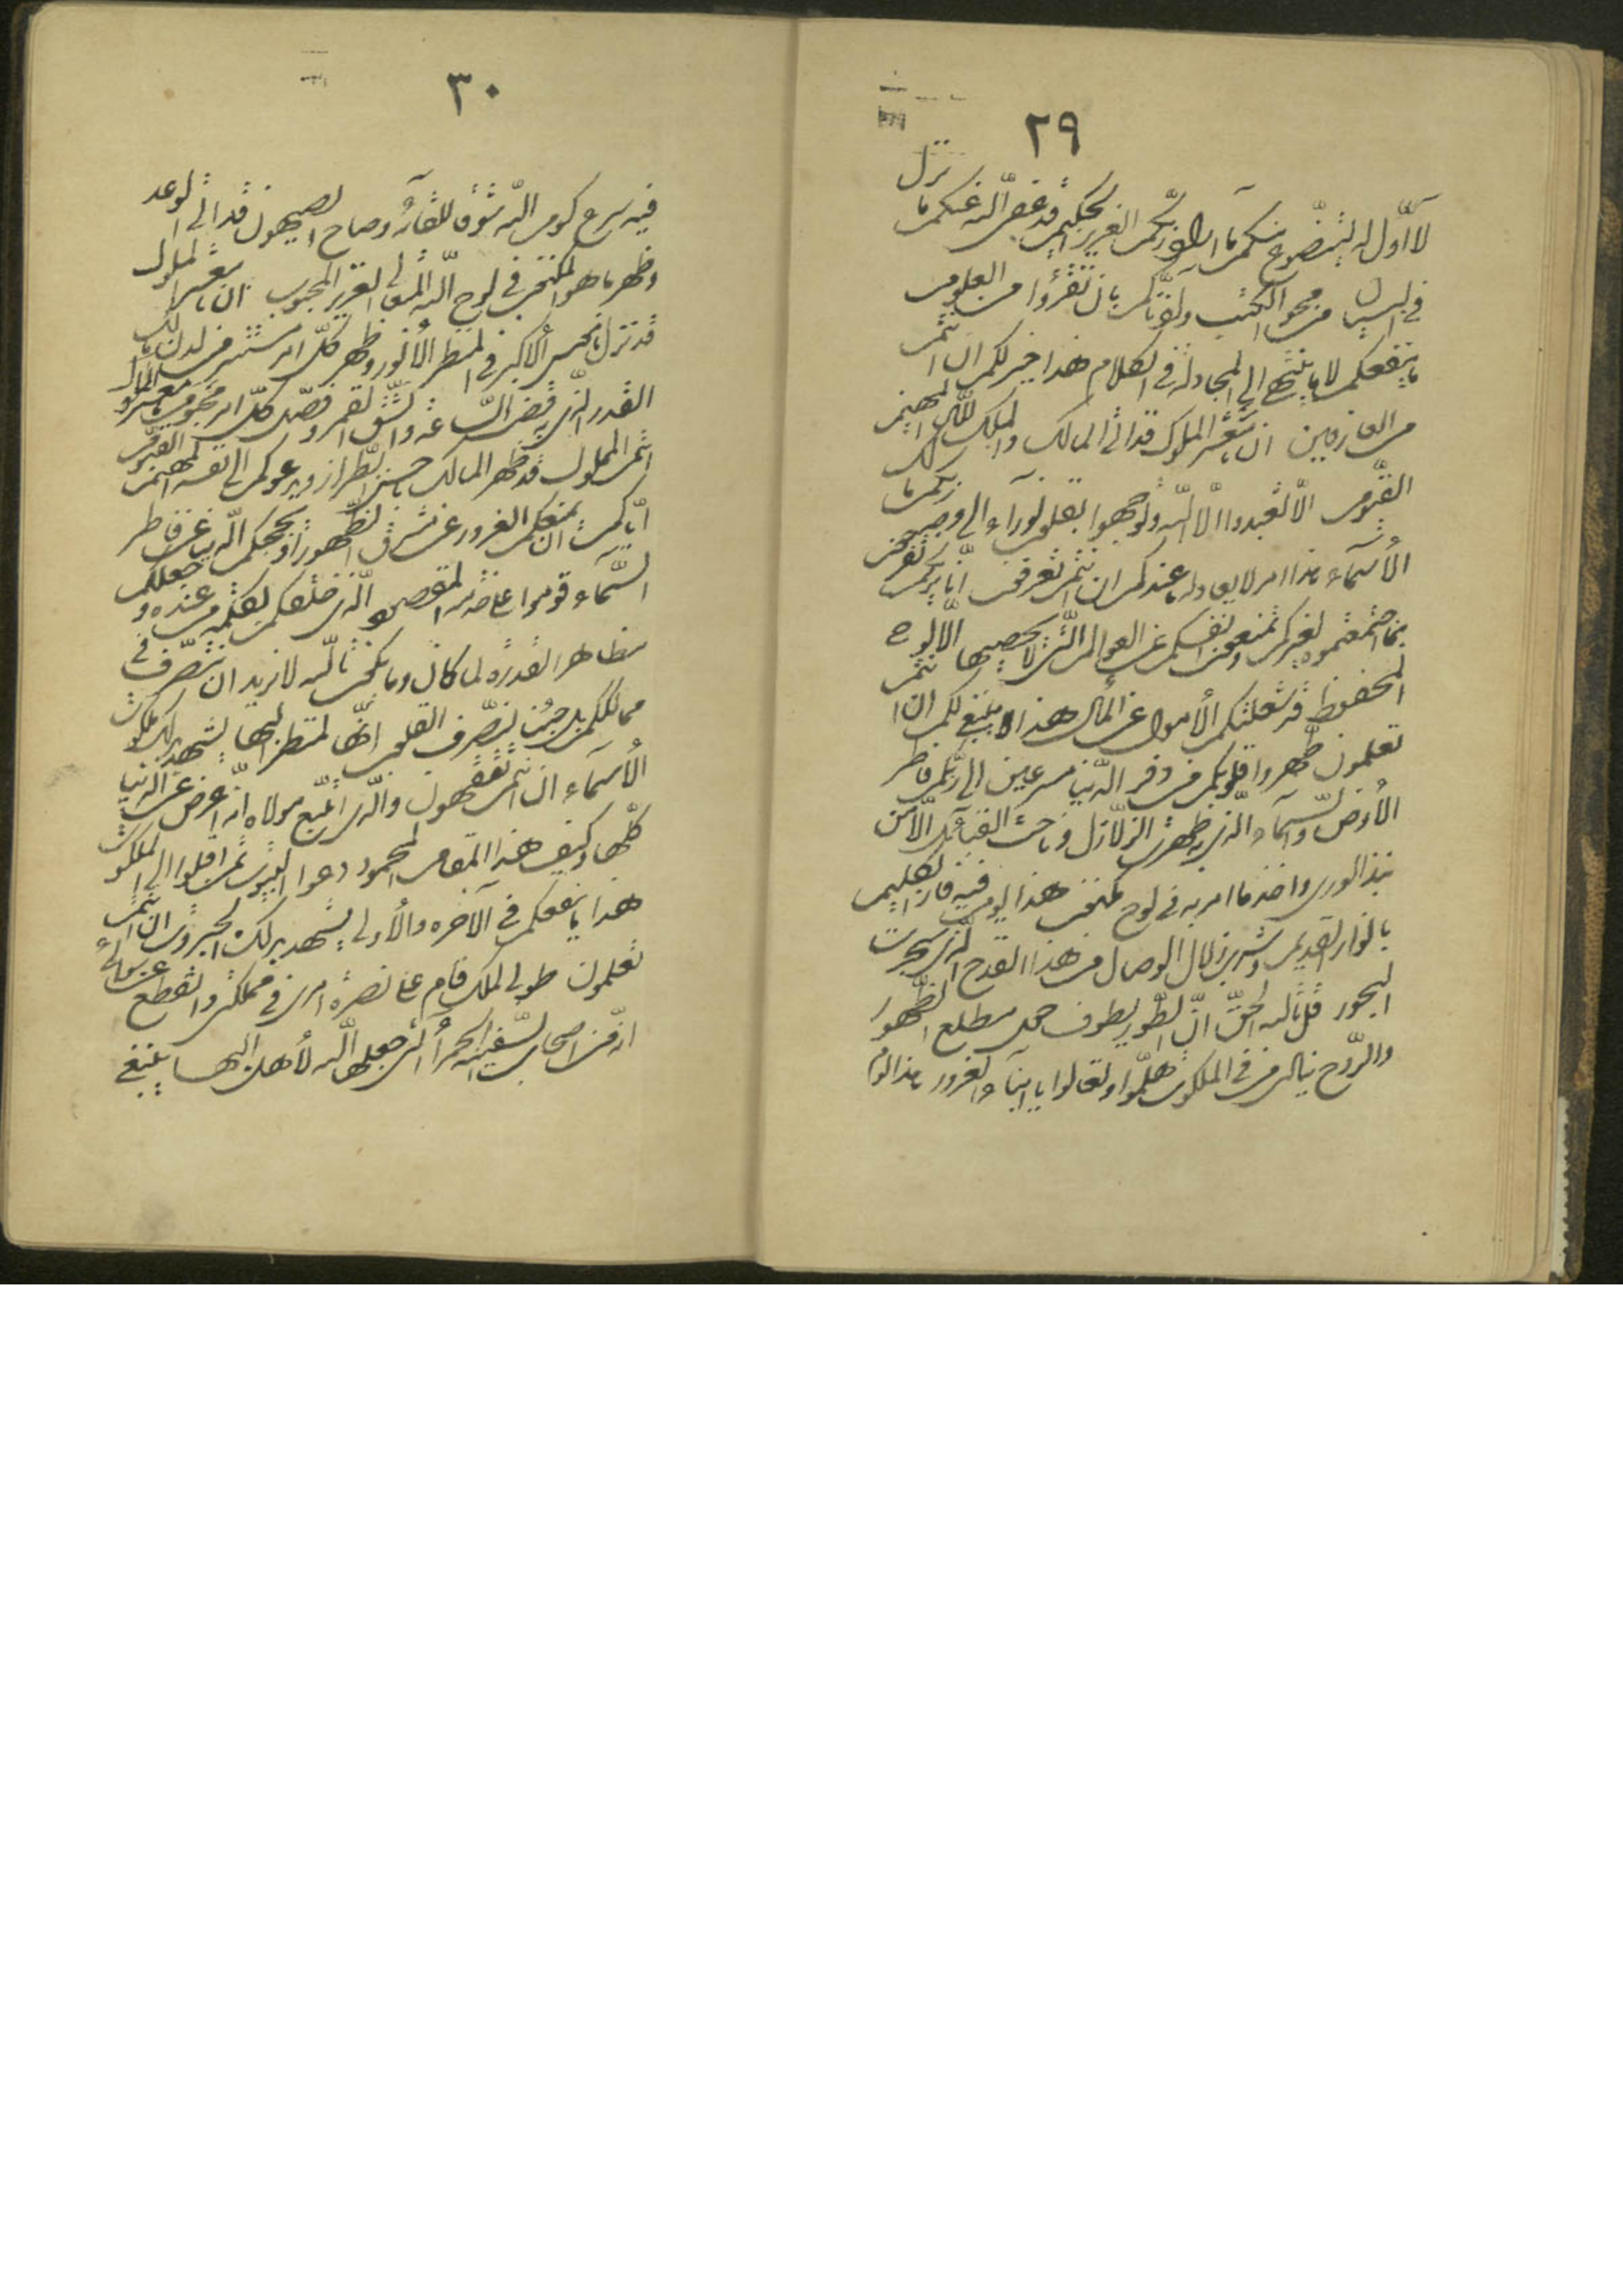 ٢٩
لآ اوّل له ليتضوّع منكم ما اراد ربّكم العزيز الحكيم قد عفى الله عنكم ما نزل
في البيان من محو الكتب واذنّاكم بان تقرئوا من العلوم
ما ينفعكم لا ما ينتهي الى المجادلة في الكلام هذا خير لكم ان انتم
من العارفين ان يا معشر الملوك قد اتى المالك والملك لله المهيمن
القيّوم الّا تعبدوا الّا الله وتوجّهوا بقلوب نورآء الى وجه ربّكم مالك
الأسمآء هذا امر لا يعادله ما عندكم ان انتم تعرفون انّا نريكم تفرحون
بما جمعتموه لغيركم وتمنعون انفسكم عن العوالم الّتي لا يحصيها الّا لوح
المحفوظ قد شغلتكم الأموال عن المآل هذا لا ينبغي لكم ان انتم
تعلمون طهّروا قلوبكم من ذفر الدّنيا مسرعين الى ربّكم فاطر
الأرض والسّمآء الّذي به ظهرت الزّلازل وناحت القبآئل الّا من
نبذ الورى واخذ ما امر به في لوح مكنون هذا يوم فيه فاز الكليم
بانوار القديم وشرب زلال الوصال من هذا القدح الّذي به سجرت
البحور قل تالله الحقّ انّ الطّور يطوف حول مطلع الظّهور
والرّوح ينادي من في الملكوت هلمّوا وتعالوا يا ابنآء الغرور هذا يوم
٣٠
فيه سرع كوم الله شوقا للقآئه وصاح الصيهون قد اتى الوعد
وظهر ما هو المكتوب في لوح الله المتعالي العزيز المحبوب ان يا معشر الملوك
قد نزل ناموس الأكبر في المنظر الأنور وظهر كلّ امر مستتر من لدن مالك
القدر الّذي به قضت السّاعة وانشقّ القمر وفصّل كلّ امر محتوم يا معشر الملوك
انتم المملوك قد ظهر المالك باحسن الطّراز ويدعوكم الى نفسه المهيمن القيّوم
ايّاكم ان يمنعكم الغرور عن مشرق الظّهور او تحجبكم الدّنيا عن فاطر
السّمآء قوموا على خدمة المقصود الّذي خلقكم بكلمة من عنده وجعلكم
مظاهر القدرة لما كان وما يكون تالله لا نريد ان نتصرّف في
ممالككم بل جئنا لتصرّف القلوب انّها لمنظر البهآء يشهد بذلك ملكوت
الأسمآء ان انتم تفقهون والّذي اتّبع مولاه انّه اعرض عن الدّنيا
كلّها وكيف هذا المقام المحمود دعوا البيوت ثمّ اقبلوا الى الملكوت
هذا ما ينفعكم في الآخرة والأولى يشهد بذلك الجبروت ان انتم
تعلمون طوبى لملك قام على نصرة امري في مملكتي وانقطع عن سوآئي
انّه من اصحاب السّفينة الحمرآء الّتي جعلها الله لأهل البهآء ينبغي